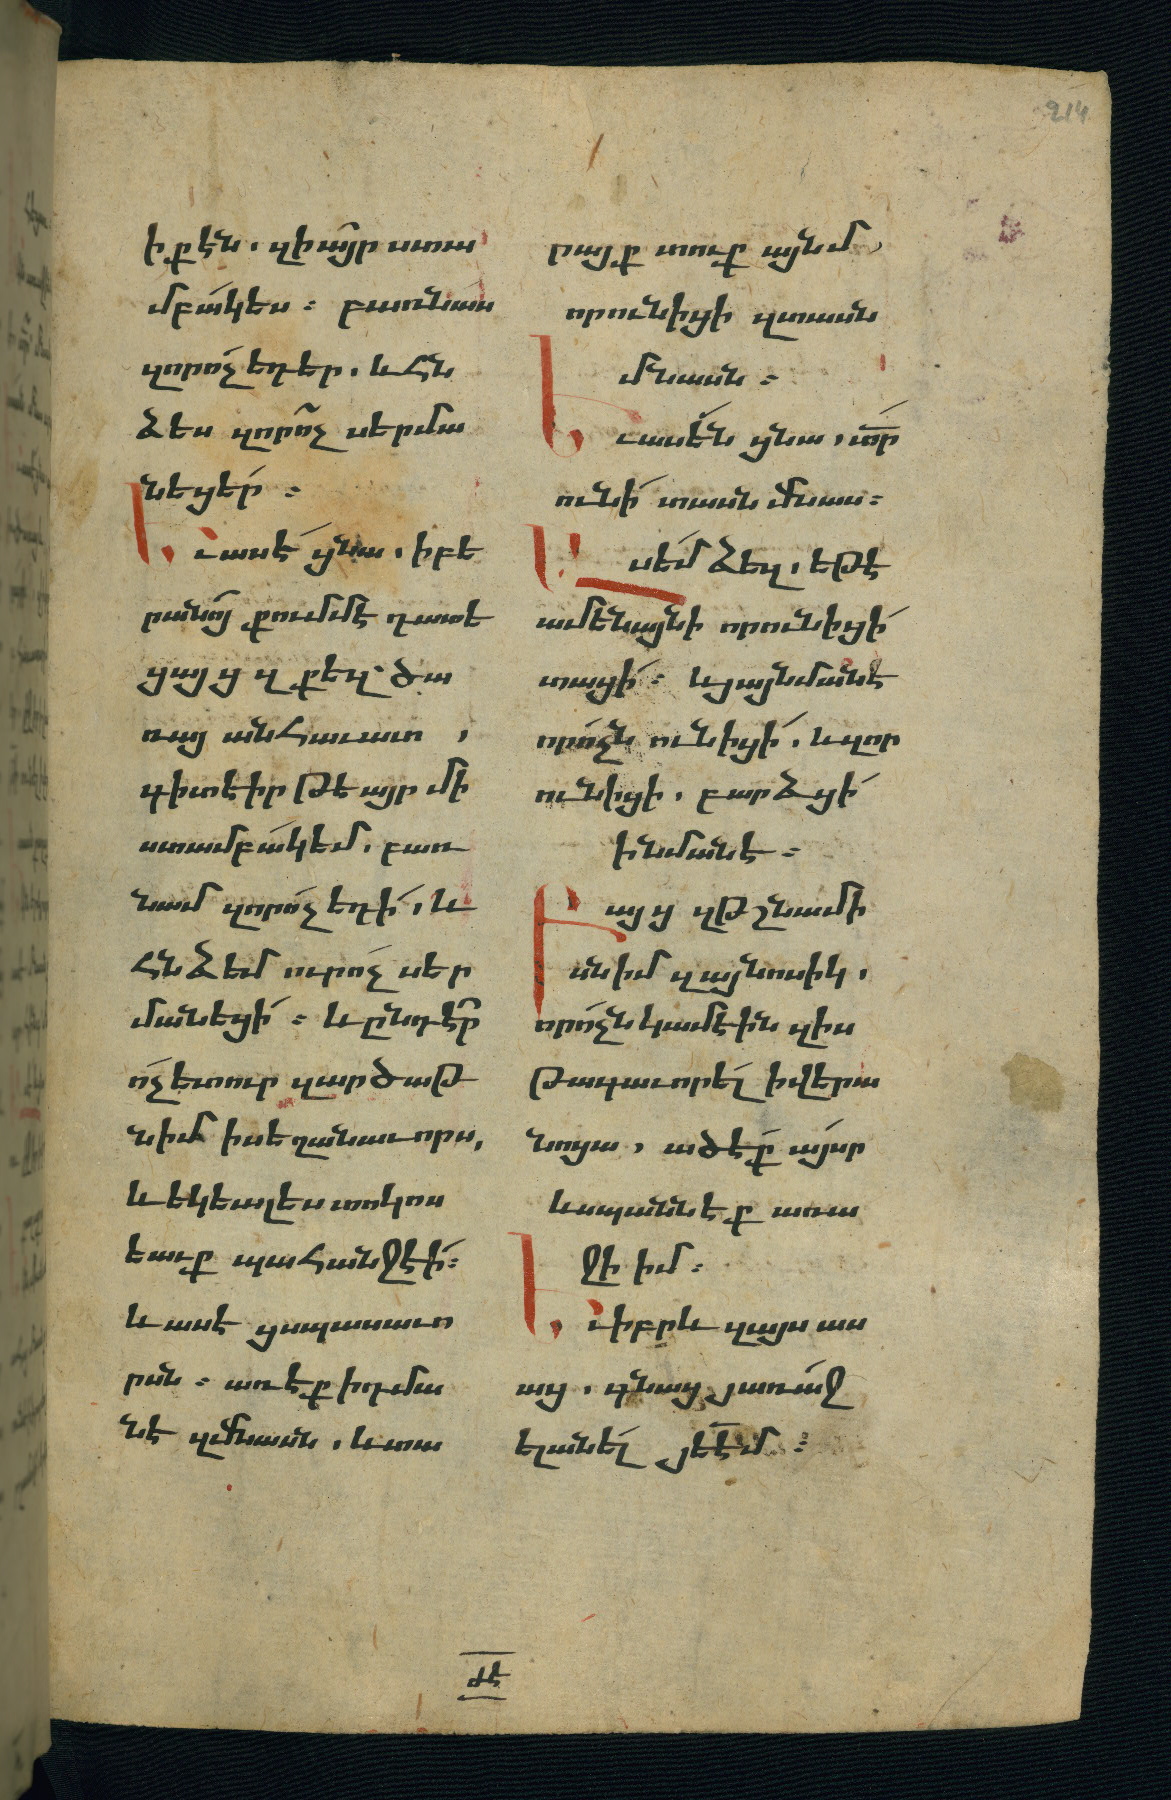 214
ի քէն. զի այր ստա
մբակես։ բառնաս
զորոչ եդեր. և հն
ձես զորոչ սերմա
նեցեր։
Եւ ասէ ցնա. ի բե
րանոյ քումմէ դատե
ցայց զքեզ. ծա
ռայ անհաւատ,
գիտէիր թե այր մի
ստամբակեմ. բառ
նամ զորոչ եդի. և
հնձեմ ուրոչ սեր
մանեցի։ և ընդէր
ոչ ետուր զարծաթ
ն իմ ի սեղանաւորս,
և եկեալ ես տոկոս
եաւք պահանջէի։
և ասէ ցսպասաւո
րսն։ առէք ի դմա
նէ զմնասն. և տա
րայք տուք այնմ,
որ ունիցի զտասն
մնասն։
Եւ ասեն ցնա. տր
ունի տասն մնաս։
Ասեմ ձեզ. եթէ
ամենայնի որ ունիցի
տացի։ և յայնմանէ
որ ոչն ունիցի. և զոր
ունիցի. բարձցի
ի նմանէ։
Բայց զթշնամի
սն իմ զայնոսիկ.
որ ոչն կամէին զիս
թագաւորել ի վերա
նոցա, ածէք այսր
և սպաննեք առա
ջի իմ։
Եւ իբրև զայս աս
աց. գնաց յառաջ
ելանել յեէմ։
ԺԷ